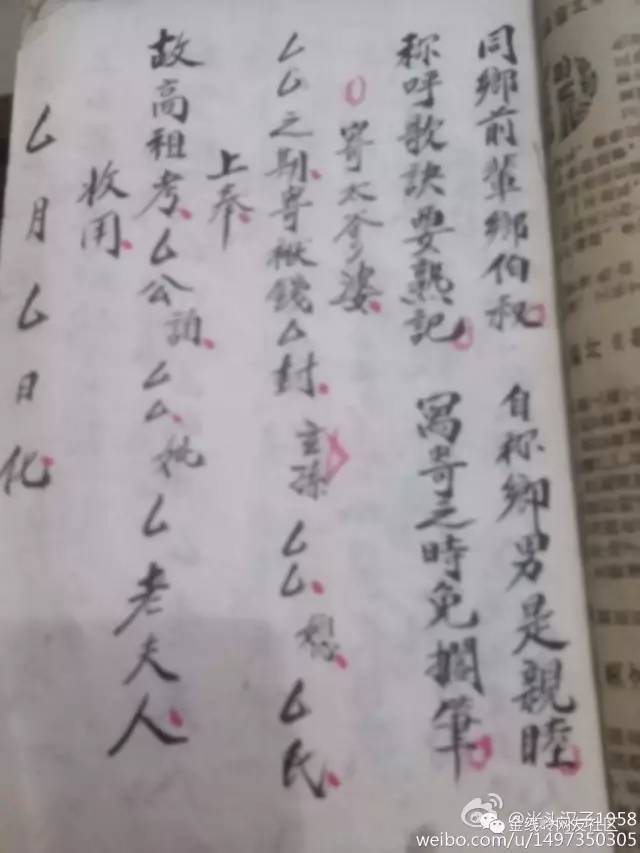 同鄉前輩鄉伯叔 自称鄉男是親睦
称呼歌訣要熟記 寫寄之時免擱筆
寄太爹婆
厶厶之期寄袱錢厶封 玄孫 厶厶 媳 厶氏
上奉
故高祖考厶公 厶厶 妣 厶老夫人
收用
厶月厶日化
头汉子1958
网友社区
weibo.com/u/1497350305